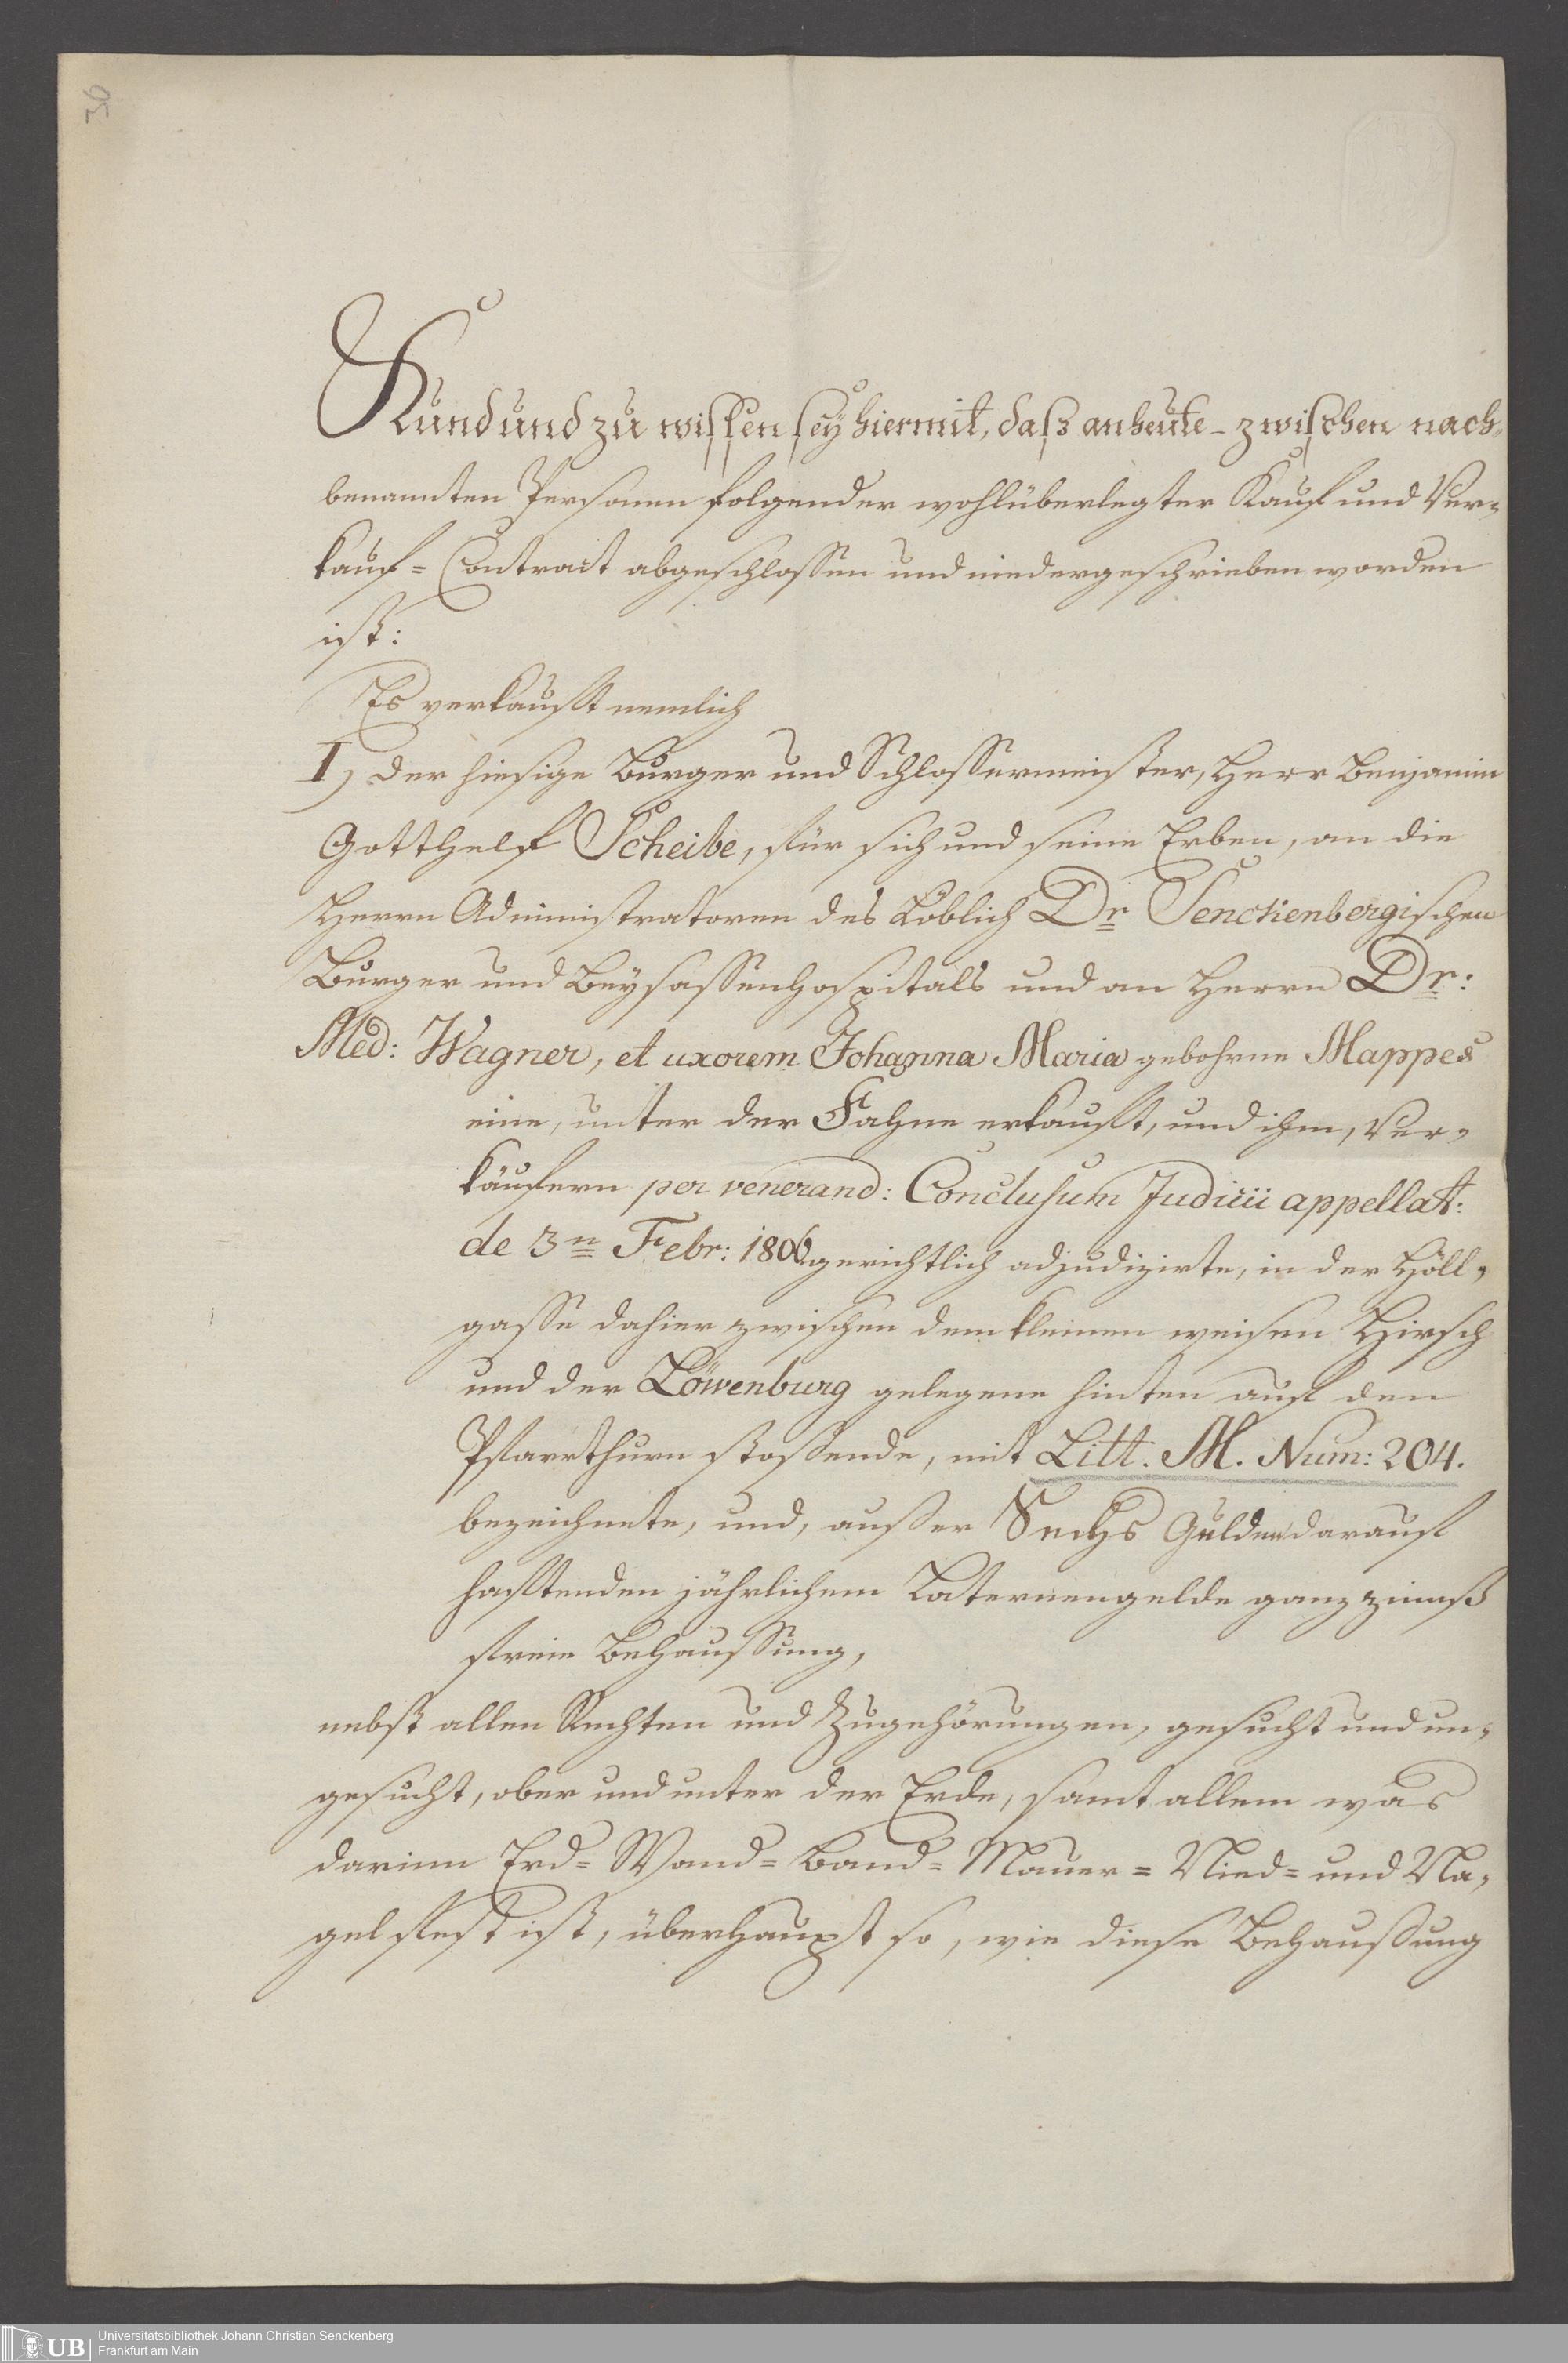 56
Kund und zu wissen sey hiermit, daß anheute - zwischen nach-
benannten Personen folgender wohlüberlegter Kauf und Ver-
kauf = Contract abgeschlossen und niedergeschrieben worden
ist:
Es verkauft nemlich
I, der hiesige Burger und Schlossermeister, Herr Benjamin
Gotthelf Scheibe, für sich und seine Erben, an die
Herrn Administratoren des Löblich Dr Senckenbergischen
Burger und Beysassenhospitals und an Herrn Dr:
Med: Wagner, et uxorem Johanna Maria gebohrne Mappes
eine, unter der Fahne erkauft, und ihm, Ver-
käufern per venerand: Conclusum Judicii appellat:
de 3n Febr: 1806 gerichtlich adjudizirte, in der Höll-
gasse dahier zwischen dem kleinen weisen Hirsch
und der Löwenburg gelegene hinten auf den
Pfarrthurn stossende, mit Litt. M. Num: 204.
bezeichnete, und, ausser Sechs Gulden darauf
haftenden jährlichem Laternengelde ganz zinnß
freie Behaussung,
nebst allen Rechten und Zugehörungen, gesucht und un-
gesucht, ober und unter der Erde, samt allem was
darinn Erd= Wand= Band= Mauer= Nied= und Na-
gel fest ist, überhaupt so, wie diese Behaussung
UB
Universitätsbibliothek Johann Christian Senckenberg
Frankfurt am Main